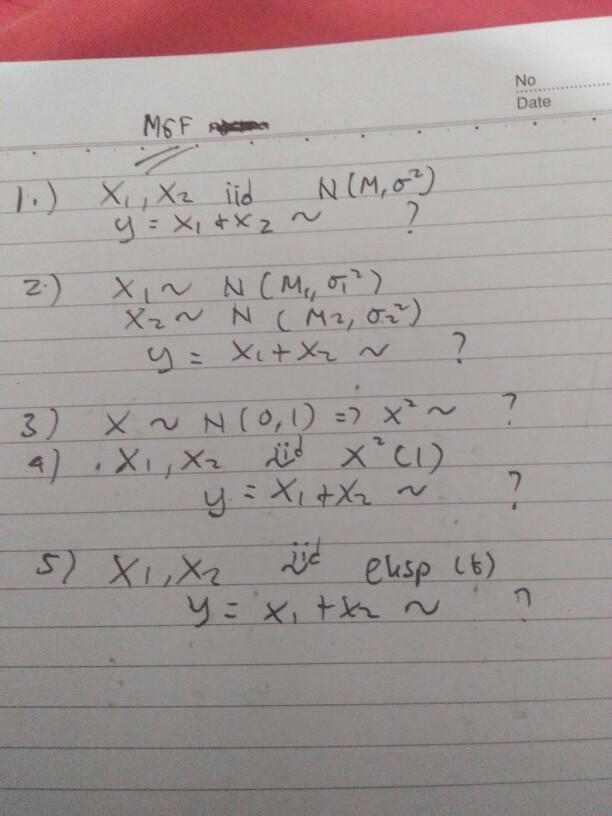 No
Date
MGF
1.) X₁, X₂ iid N(M, σ²)
y = X₁ + X₂ ~ ?
2.) X₁ ~ N(M₁, σ₁²)
X₂ ~ N(M₂, σ₂²)
y = X₁ + X₂ ~ ?
3) X ~ N(0,1) => X² ~ ?
4) . X₁, X₂ iid X²(1)
y = X₁ + X₂ ~ ?
5) X₁, X₂ iid eksp (θ)
y = X₁ + X₂ ~ ?